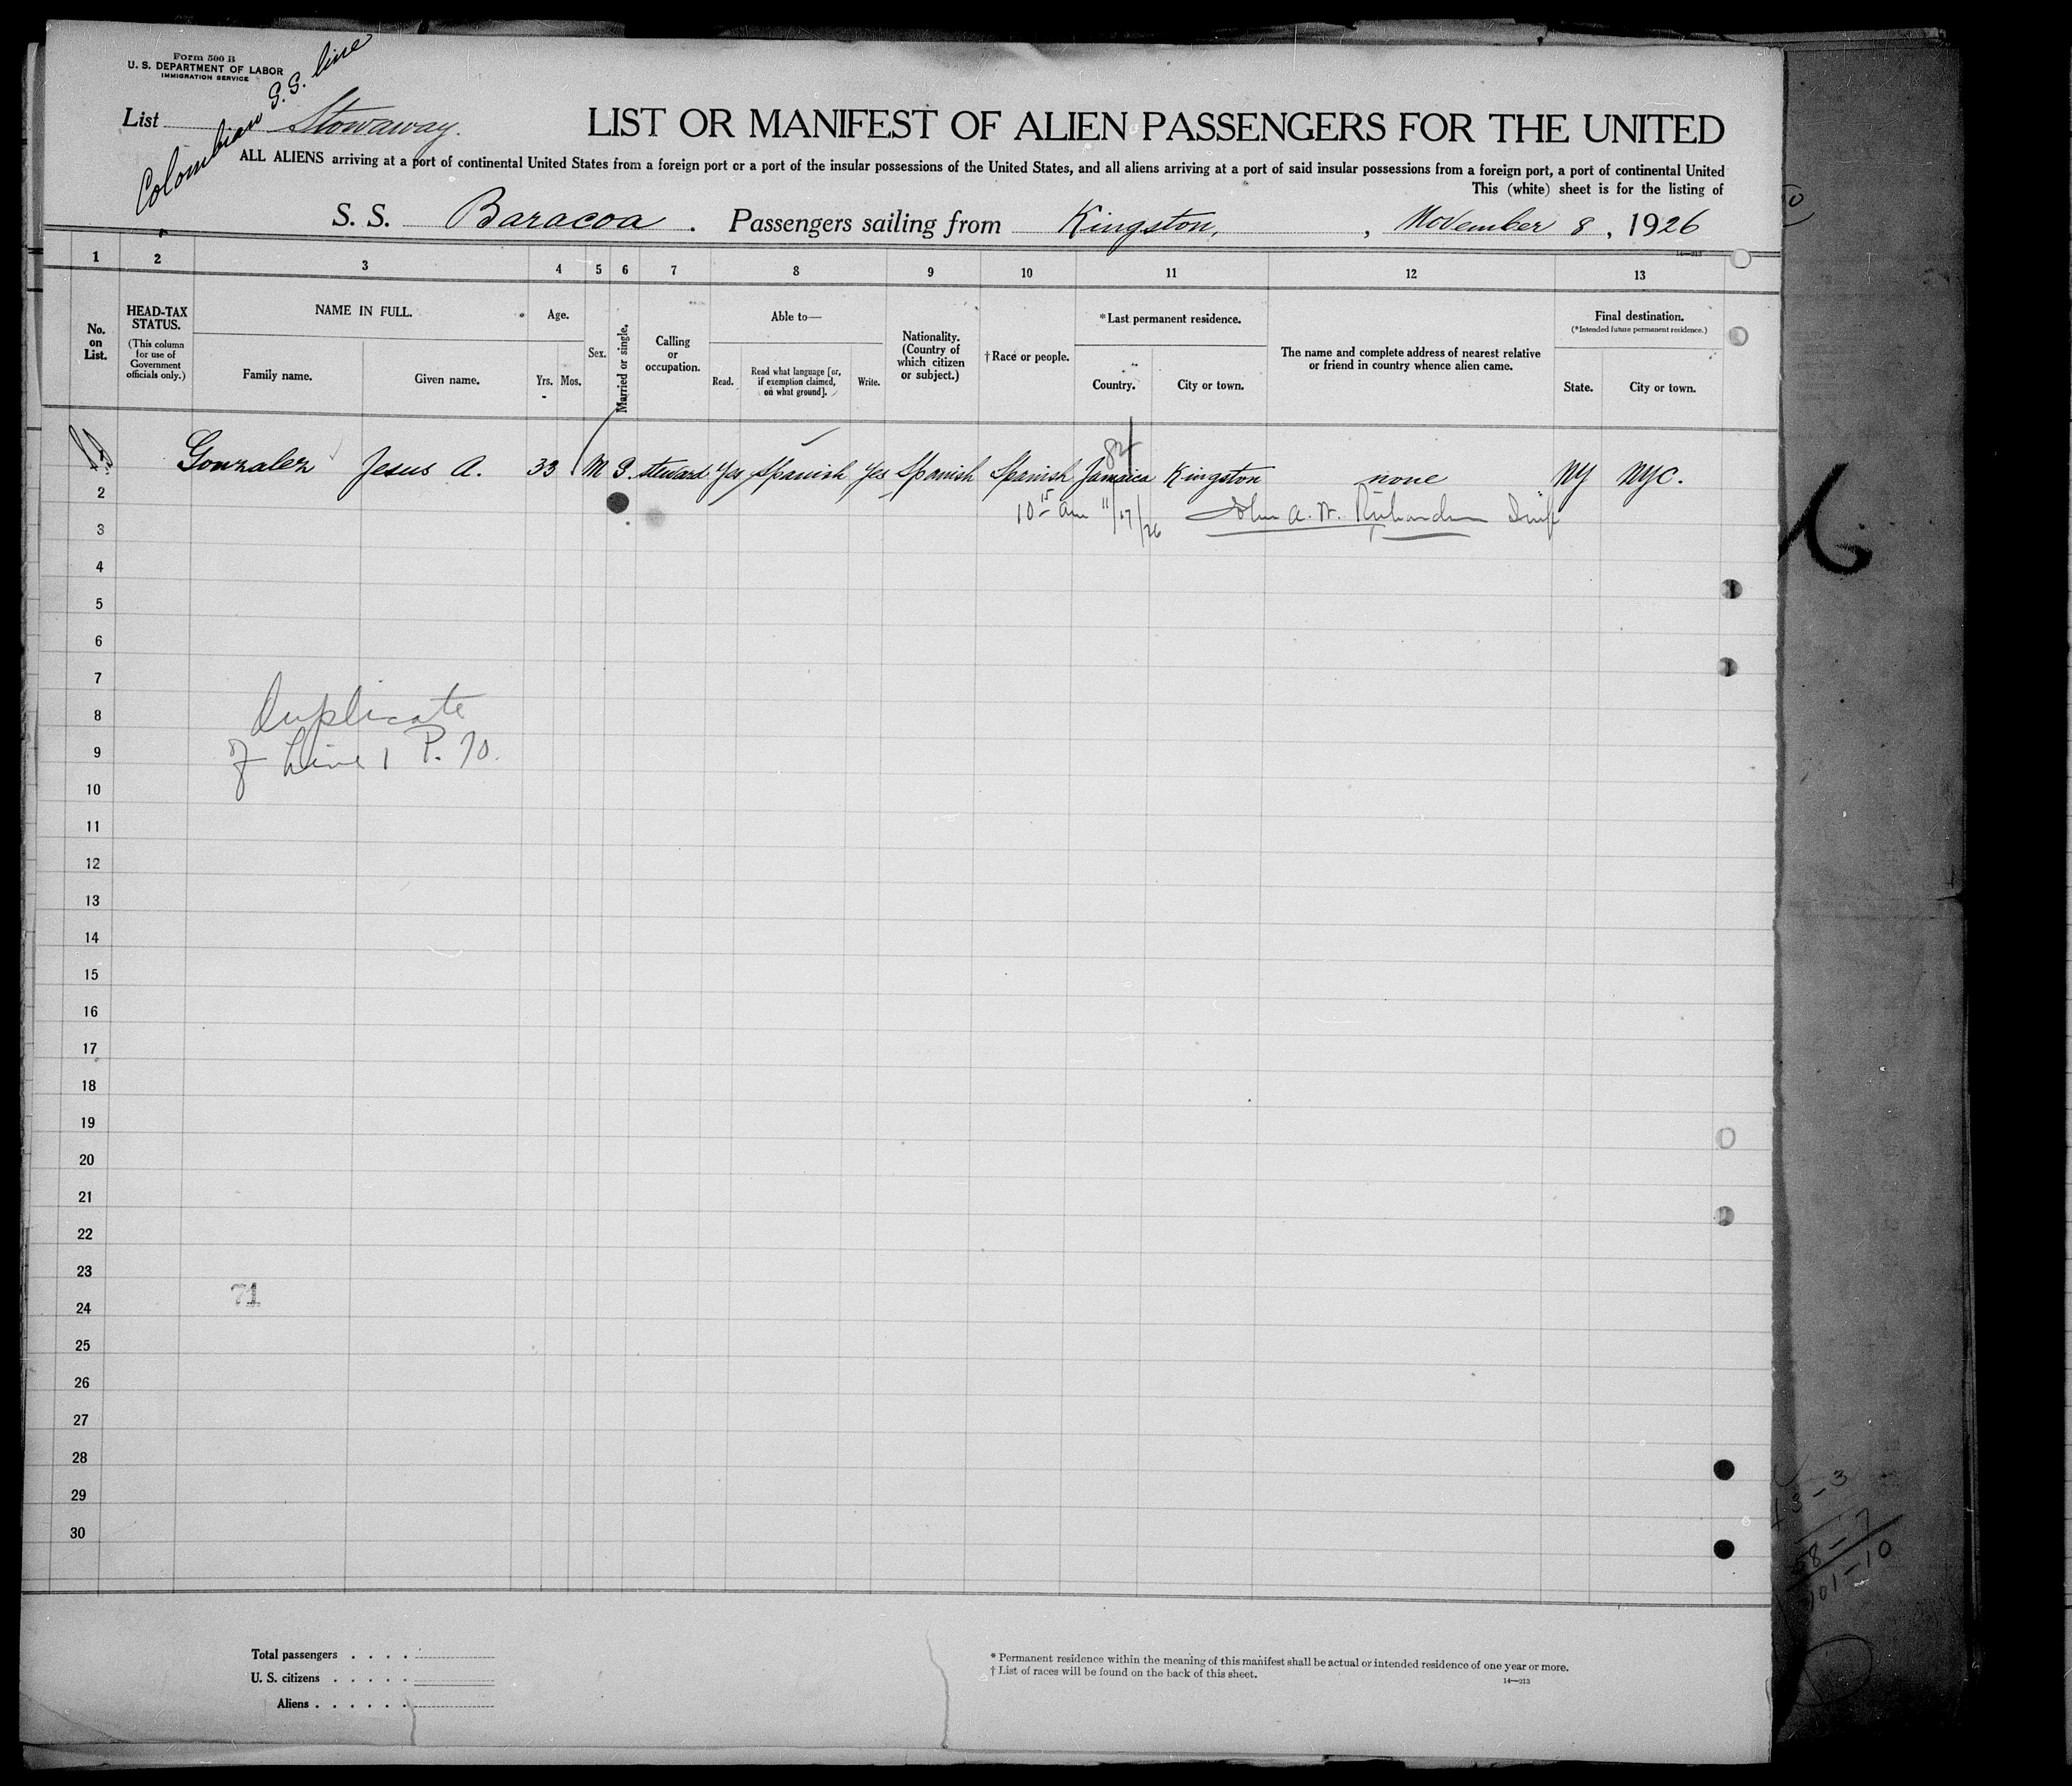 Form 500 B
U. S. DEPARTMENT OF LABOR
IMMIGRATION SERVICE
Colombian S.S. line
List Stowaway.
LIST OR MANIFEST OF ALIEN PASSENGERS FOR THE UNITED
ALL ALIENS arriving at a port of continental United States from a foreign port or a port of the insular possessions of the United States, and all aliens arriving at a port of said insular possessions from a foreign port, a port of continental United
This (white) sheet is for the listing of
S. S. Baracoa . Passengers sailing from Kingston, , November 8 , 1926
14—213
1 2 3 4 5 6 7 8 9 10 11 12 13
No. on List.
HEAD-TAX STATUS.
(This column for use of Government officials only.)
NAME IN FULL.
Family name.
Given name.
Age.
Yrs. Mos.
Sex.
Married or single.
Calling or occupation.
Able to—
Read.
Read what language [or, if exemption claimed, on what ground].
Write.
Nationality. (Country of which citizen or subject.)
†Race or people.
*Last permanent residence.
Country.
City or town.
The name and complete address of nearest relative or friend in country whence alien came.
Final destination.
(*Intended future permanent residence.)
State.
City or town.
82
Gonzalez Jesus A. 33 M S. steward Yes Spanish Yes Spanish Spanish Jamaica Kingston none NY NYC.
10 15 am 11/17/26 John A. W. Richardson
2
3
4
5
6
7
8
9
10
11
12
13
14
15
16
17
18
19
20
21
22
23
24
25
26
27
28
29
30
Duplicate
of Line 1 P. 70.
71
Total passengers . . . .
U. S. citizens . . . . .
Aliens . . . . . .
* Permanent residence within the meaning of this manifest shall be actual or intended residence of one year or more.
† List of races will be found on the back of this sheet.
14—213
101-10